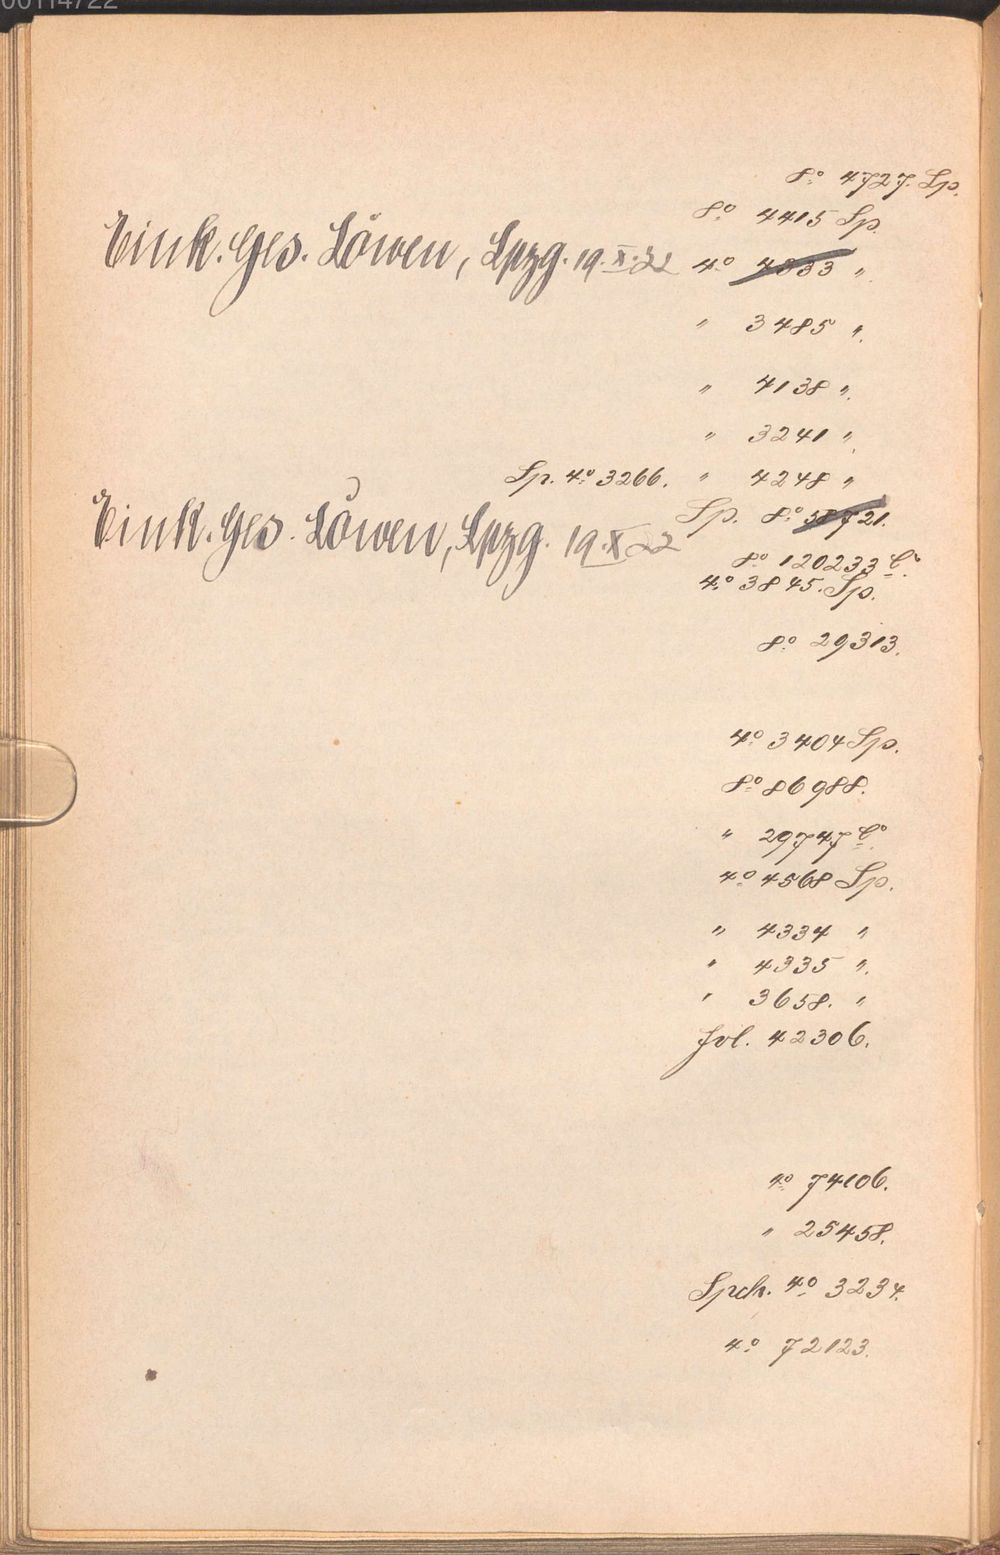 00114722
8° 4727. Sp.
8° 4415 Sp.
Eink. Ges. Löwen, Lpzg. 19.X.22 4° 4833 ".
" 3485 ".
" 4138 ".
" 3241 "
Sp. 4° 3266. " 4248 "
Sp. 8° 58721.
Eink. Ges. Löwen, Lpzg. 19.X.22
8° 120233 C°.
4° 3845. Sp.
8° 29313.
4° 3404 Sp.
8° 86988.
" 29747 C°.
4° 4568 Sp.
" 4334 "
" 4335 ".
" 3658. "
fol. 42306.
4° 74106.
" 25458.
Spch. 4° 3234.
4° 72123.